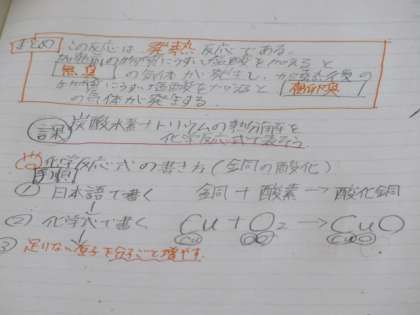 まとめ この反応は 発熱 反応である。
加熱前の物質にうすい塩酸を加えると
無臭 の気体が発生し、加熱後の
物質にうすい塩酸を加えると 腐卵臭
の気体が発生する。
課題 炭酸水素ナトリウムの熱分解を
化学反応式で表そう
化学反応式の書き方(銅の酸化)
① 日本語で書く 銅 + 酸素 → 酸化銅
② 化学式で書く Cu + O₂ → CuO
Cu OO CuO
③ 足りない原子を分子ごと増やす.